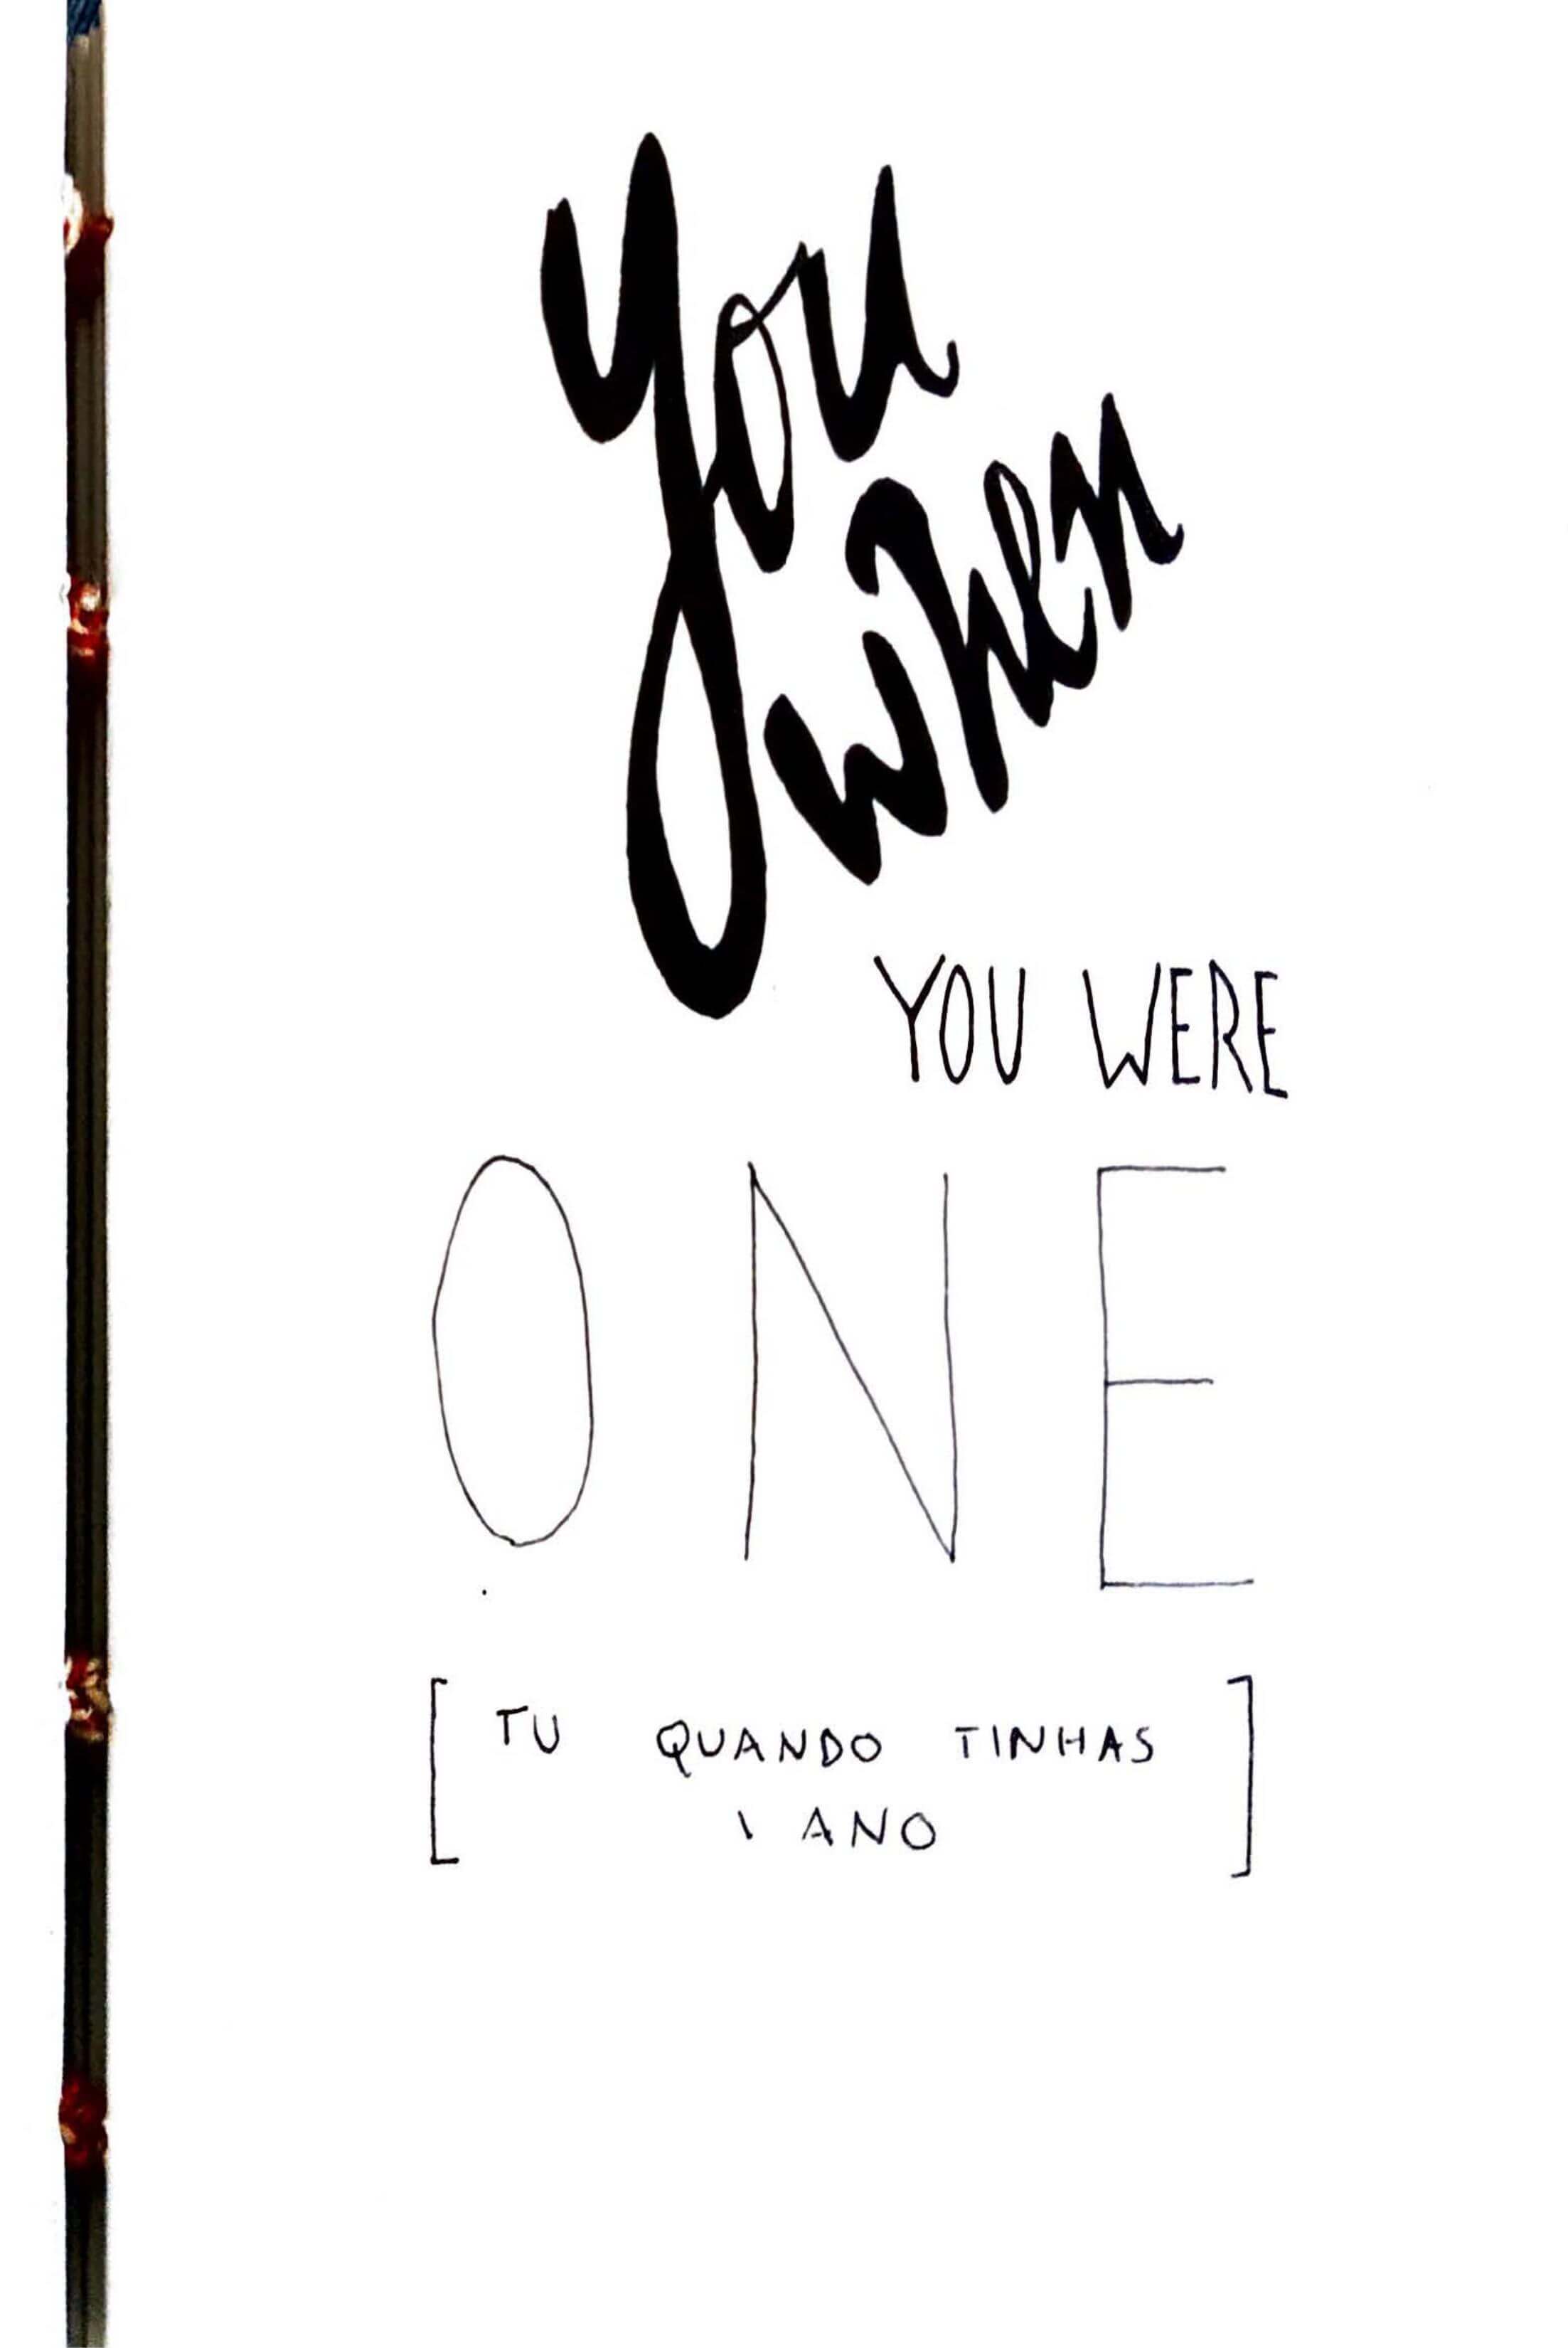 You
when
YOU WERE
ONE
[ TU QUANDO TINHAS
1 ANO ]